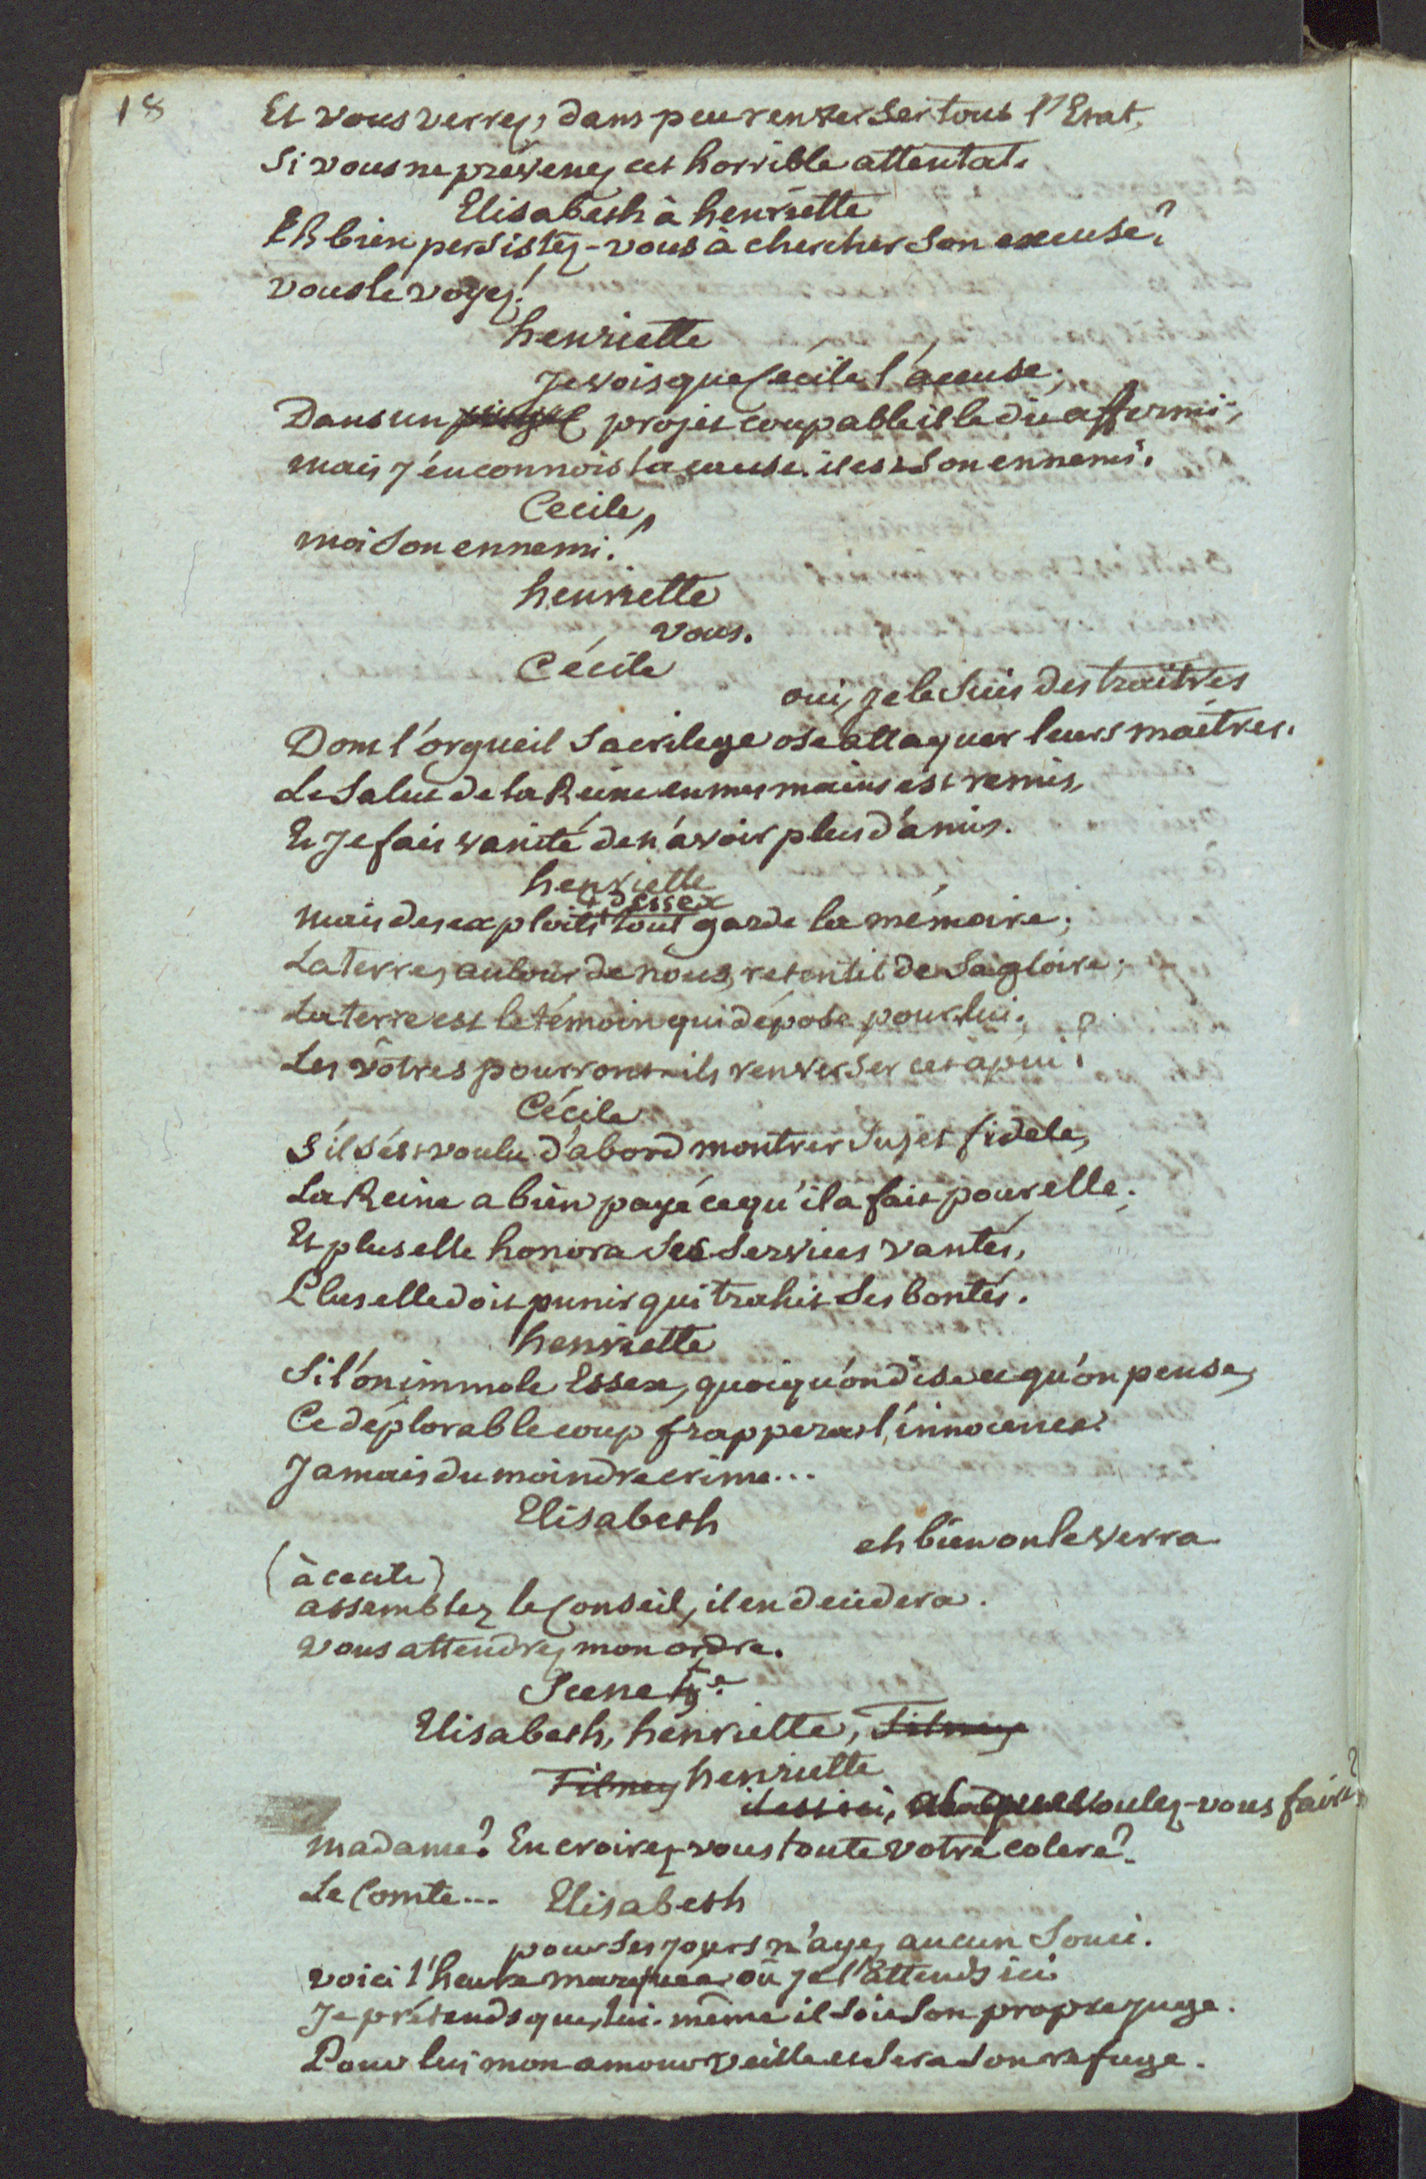 18
Et vous verrez, dans peu renverser tout l'Etat,
Si vous ne prévenez cet horrible attentat.
Elisabeth à henriette
Eh bien persistez-vous à chercher son excuse?
vous le voyez!
henriette
Je vois que Cécile l'accuse;
Dans un projet coupable il le dit affermi;
mais j'en connois la cause. il est son ennemi.
Cecile,
moi son ennemi!
henriette
vous.
Cécile
oui, je le suis des traitres
Dont l'orgueil sacrilege ose attaquer leurs maîtres.
Le salut de la Reine en mes mains est remis,
Et Je fais vanité de n'avoir plus d'amis.
henriette
+ d'essex
mais des exploits + tout garde la mémoire;
La terre, autour de nous, retentit de sa gloire;
La terre est le témoin qui dépose pour lui;
Les vôtres pourront-ils renverser cet apui?
Cécile
S'il s'est voulu d'abord montrer sujet fidele,
La Reine a bien payé ce qu'il a fait pour elle;
Et plus elle honora ses services vantés,
Plus elle doit punir qui trahit ses bontés.
henriette
Si l'on immole Essex, quoiqu'on dise et qu'on pense,
Ce déplorable coup frappera l'innocence.
Jamais du moindre crime...
Elisabeth
eh bien on le verra
(à cecile)
assemblez le Conseil, il en decidera.
Vous attendrez mon ordre.
Scene 5e.
Elisabeth, henriette, Tilney
Tilney henriette
il est ici, ah que voulez-vous faire?
madame? En croirez-vous toute votre colere?
Le Comte...
Elisabeth
pour ses jours n'ayez aucun souci.
voici l'heure marquée où je l'attends ici
Je prétends que, lui-même il soit son propre juge.
Pour lui mon amour veille et sera son refuge.